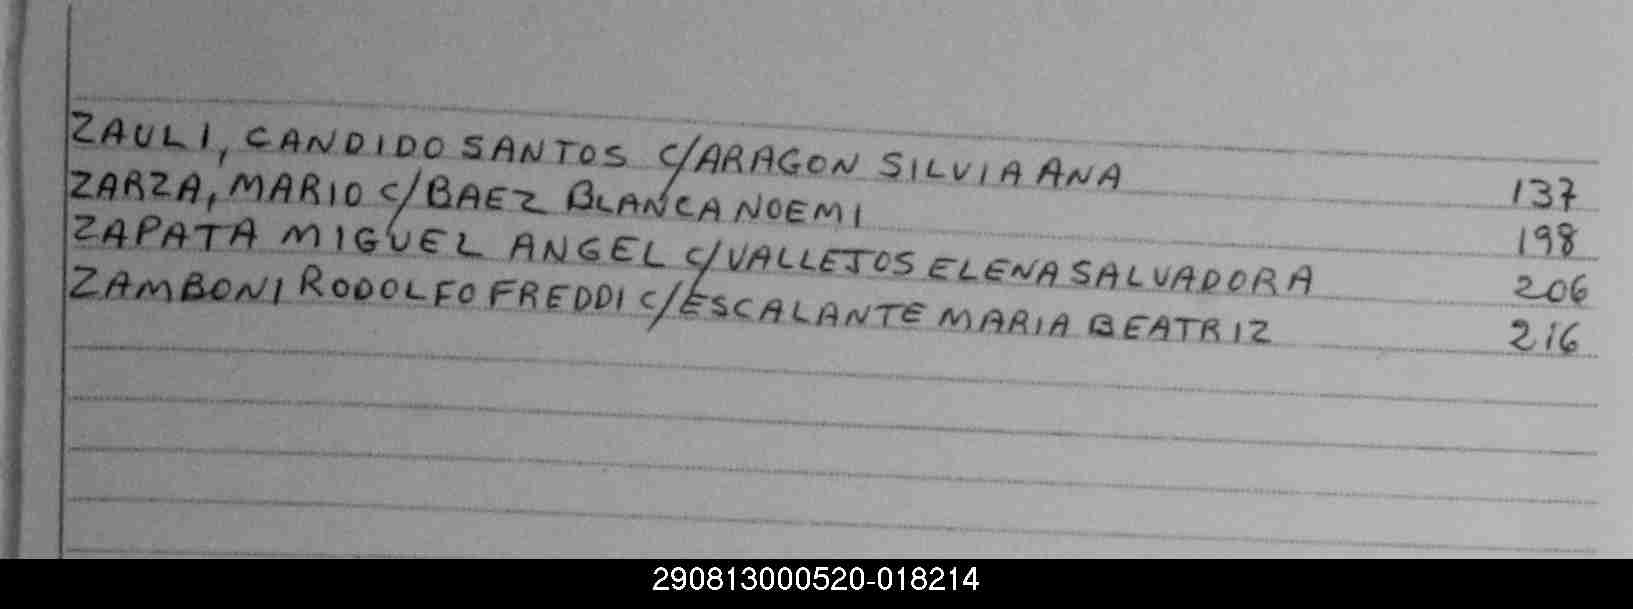 ZAULI, CANDIDO SANTOS C/ARAGON SILVIA ANA 137
ZARZA, MARIO C/BAEZ BLANCA NOEMI 198
ZAPATA MIGUEL ANGEL C/VALLEJOS ELENA SALVADORA 206
ZAMBONI RODOLFO FREDDI C/ESCALANTE MARIA BEATRIZ 216
290813000520-018214